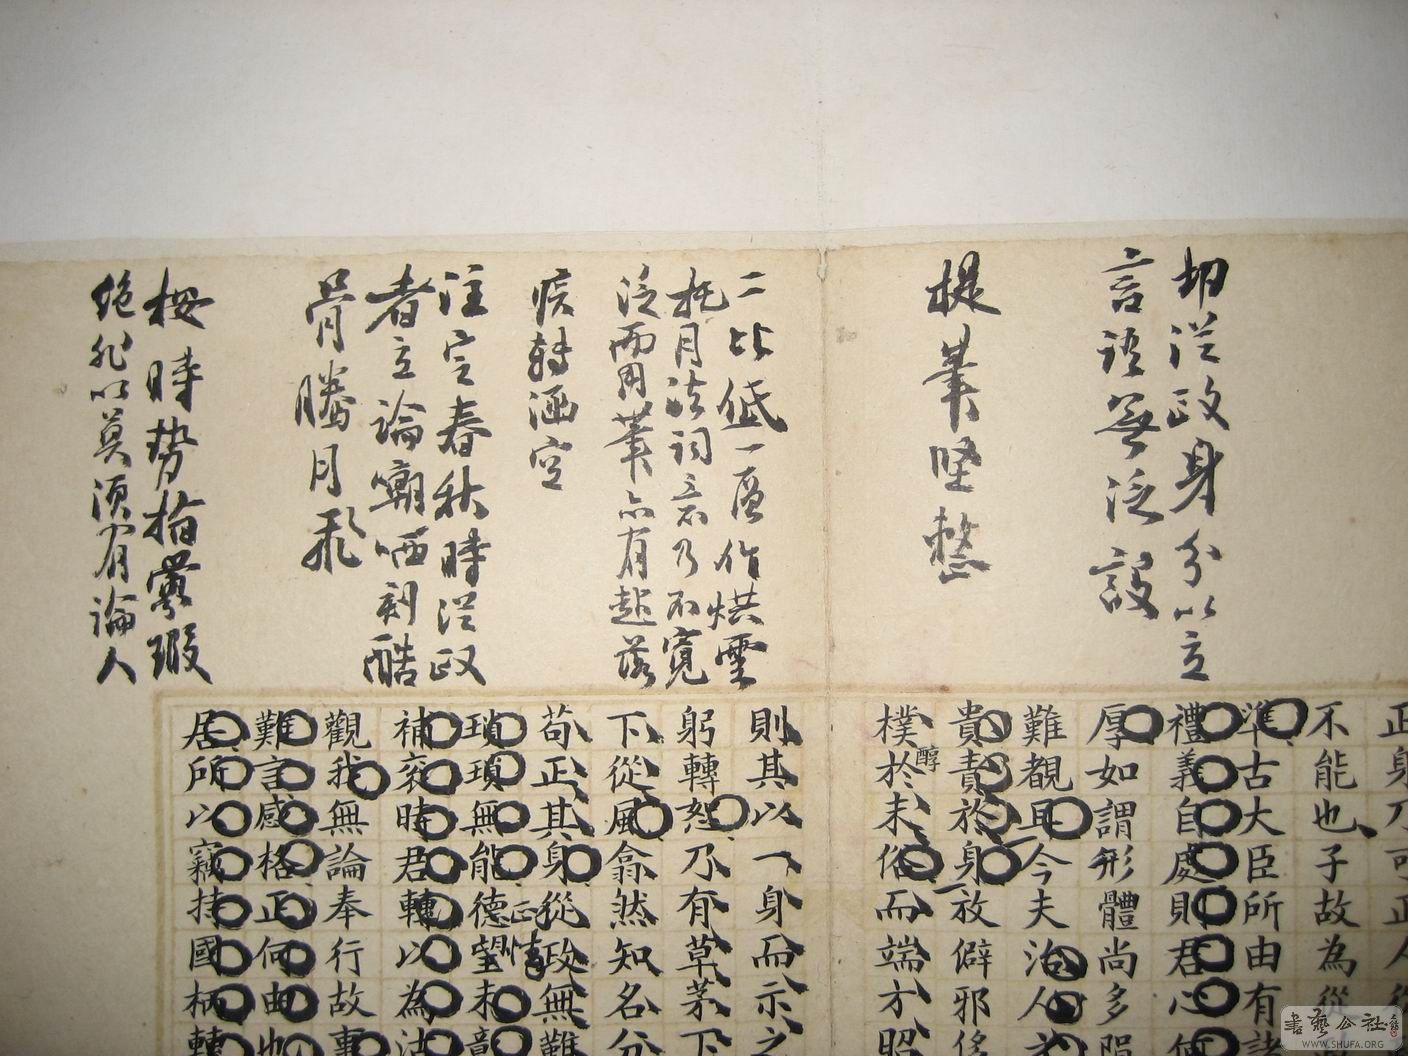 切從政身分以立
言語無泛設
提筆堅整
二比低一層作烘雲
托月法詞意乃不寬
泛而用筆亦有起落
疾轉涵空
注定春秋時從政
者立論嘲哂刻酷
骨騰月飛
按時勢指蒙瑕
絕非以莫須有論人
正身乃可正人從
不能也子故為從
準古大臣所由有諸
禮義自處則君心何
厚如謂形體尚多隕
難觀且今夫治人
貴責於身放僻邪侈
樸於未俗而端方照
醇
則其以一身而示之
躬轉恕乃有草茅下
下從風翕然知名分
苟正其身從政無難
正情
瑣瑣無能德望未章
補袞時君轉以為沽
觀我無論奉行故事
難言感格正何由也
居所以竊持國柄轉
書藝公社
WWW.SHUFA.ORG